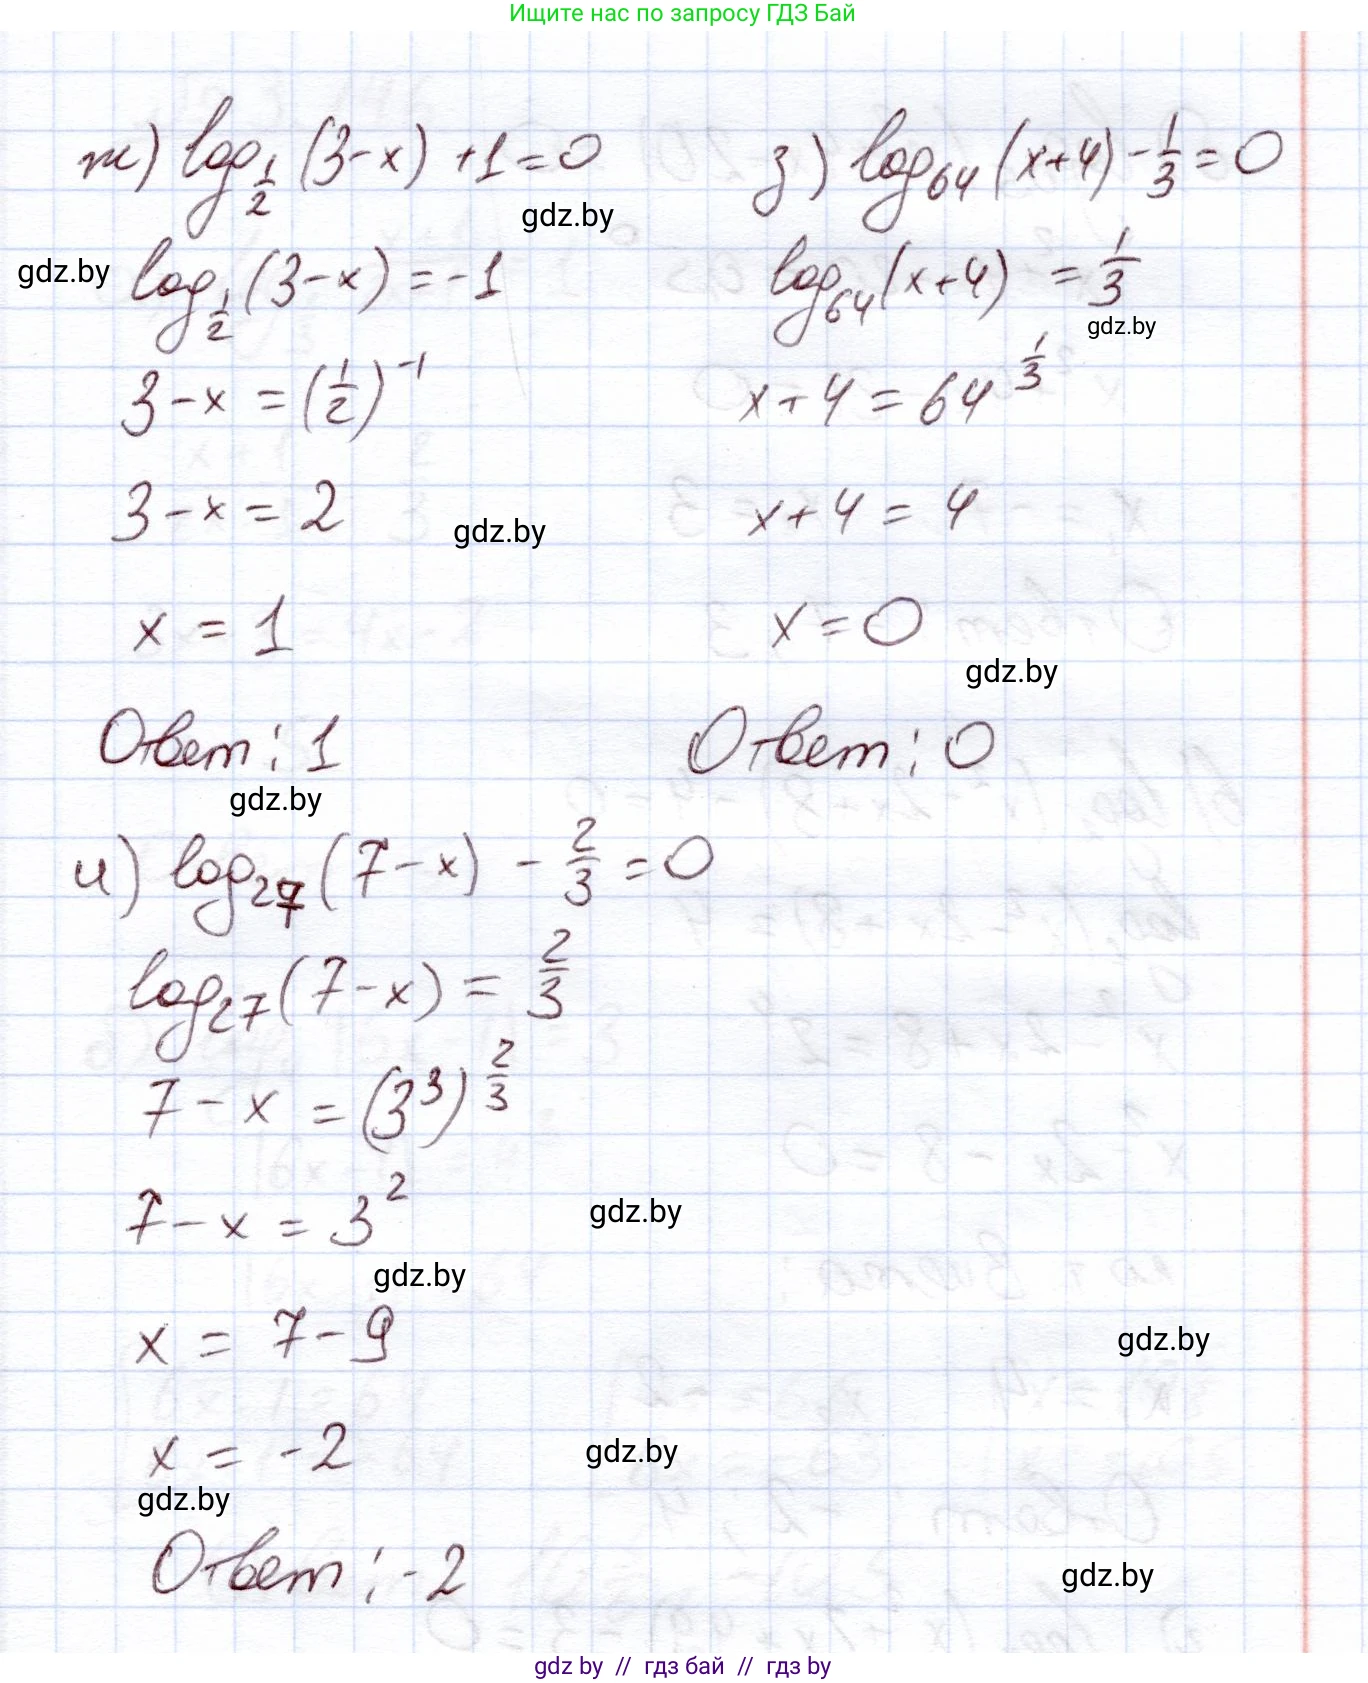 Ищите нас по запросу ГДЗ Бай
ж) log_{1/2} (3-x) +1=0
gdz.by
gdz.by
log_{1/2} (3-x) = -1
3-x = (1/2)^{-1}
3-x = 2
gdz.by
x = 1
Ответ: 1
gdz.by
з) log_{64} (x+4) - 1/3 = 0
log_{64} (x+4) = 1/3
gdz.by
x+4 = 64^{1/3}
x+4 = 4
x = 0
gdz.by
Ответ: 0
и) log_{27} (7-x) - 2/3 = 0
log_{27} (7-x) = 2/3
7-x = (3^3)^{2/3}
7-x = 3^2
gdz.by
gdz.by
x = 7-9
gdz.by
x = -2
gdz.by
gdz.by
Ответ: -2
gdz.by
gdz.by // гдз бай // гдз by